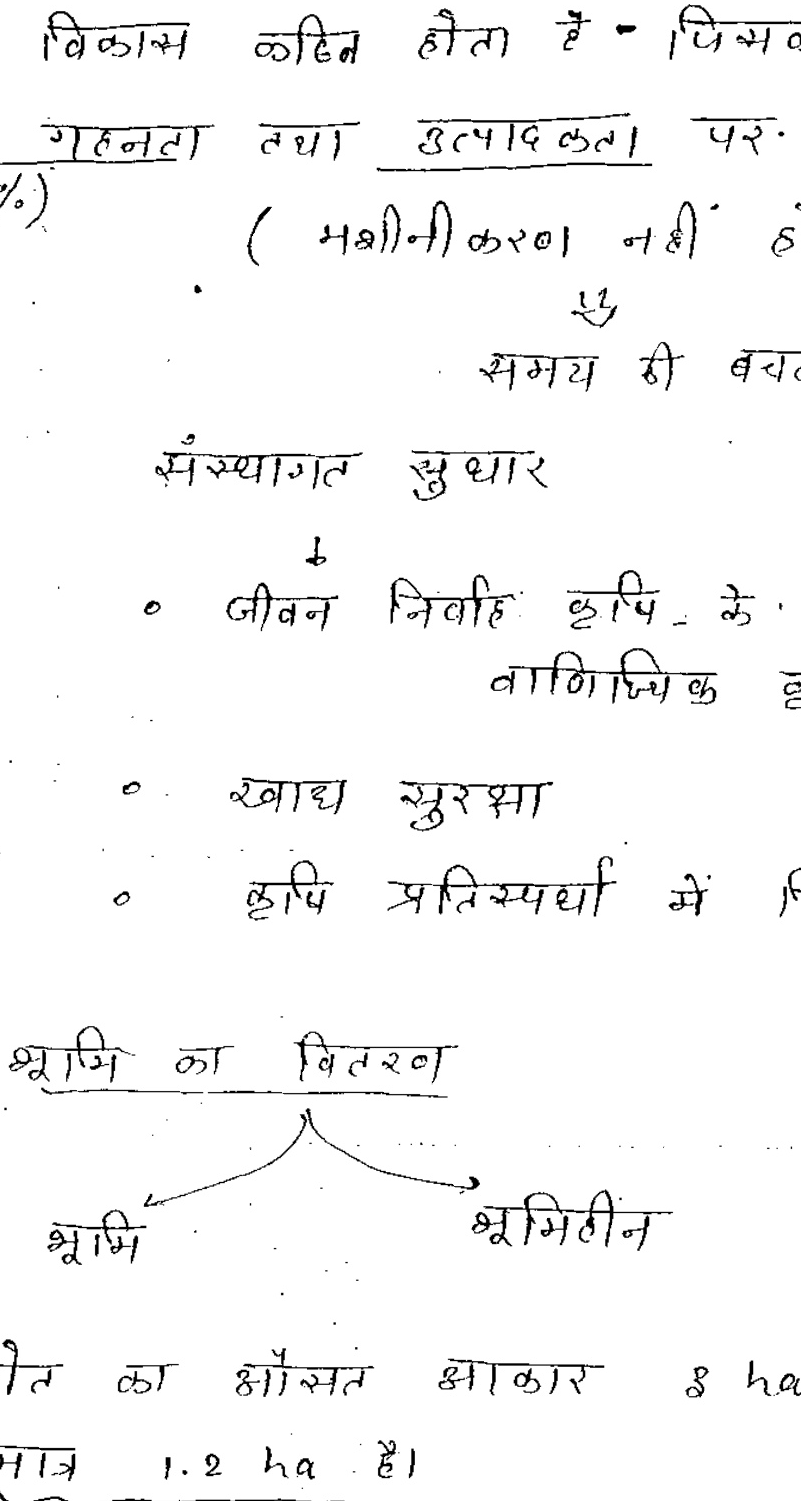 विकास कठिन होता है - जिसक
गहनता तथा उत्पादकता पर
%)
( मशीनीकरण नहीं हो
समय की बचत
संस्थागत सुधार
↓
• जीवन निर्वाह कृषि के
वाणिज्यिक कृ
• खाद्य सुरक्षा
• कृषि प्रतिस्पर्धा में
भूमि का वितरण
भूमि भूमिहीन
का औसत आकार 8 ha
मात्र 1.2 ha है।